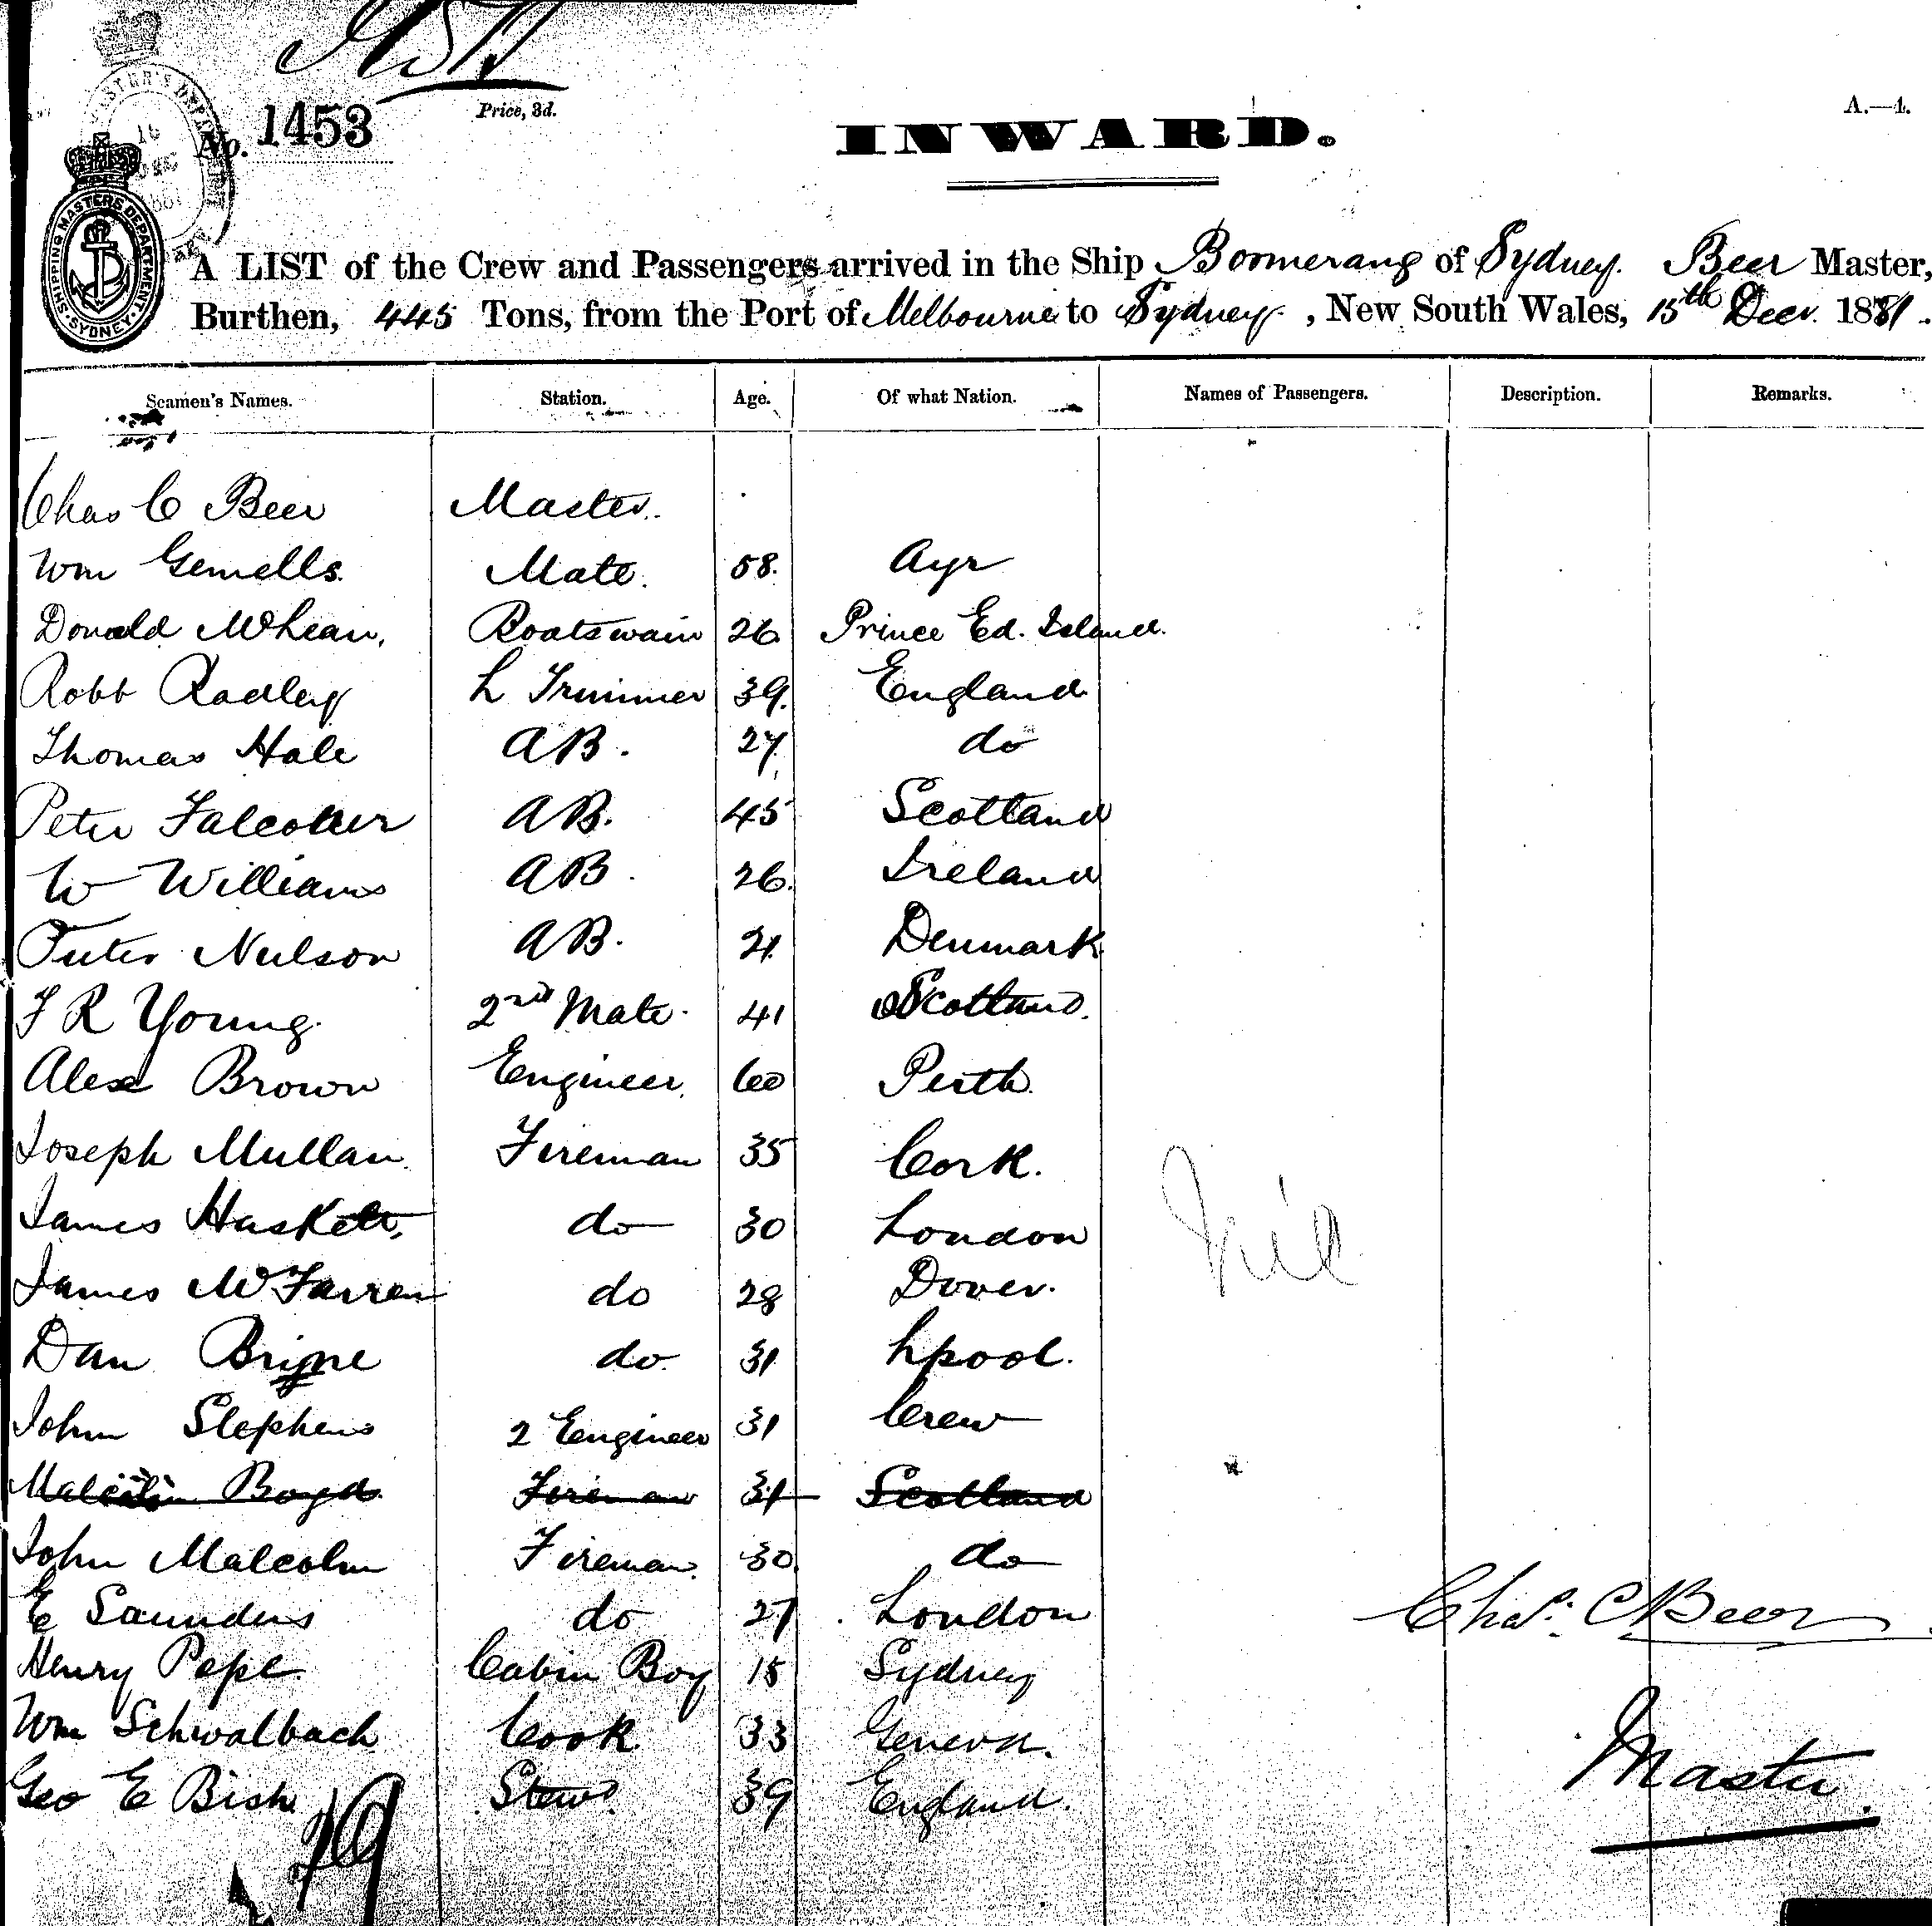 No. 1453
Price, 3d.
A.—4.
INWARD.
SHIPPING MASTERS DEPARTMENT SYDNEY
A LIST of the Crew and Passengers arrived in the Ship Boomerang of Sydney. Beer Master,
Burthen, 445 Tons, from the Port of Melbourne to Sydney, New South Wales, 15th Decr. 1881.
Seamen's Names. Station. Age. Of what Nation. Names of Passengers. Description. Remarks.
Chas C Beer Master.
Wm Gemells. Mate. 58. Ayr
Donald McLean. Boatswain 26. Prince Ed. Island.
Robt Radley L Trimmer 39. England
Thomas Hale AB. 27. do
Peter Falconer AB. 45 Scotland
W Williams AB. 26. Ireland
Peter Neilson AB. 21. Denmark
F R Young. 2nd Mate. 41 Scotland.
Alex Brown Engineer. 60 Perth.
Joseph Mullan. Fireman 35 Cork.
James Haskett, do 30 London
James McFarren do 28 Dover.
Dan Brine do. 31 Lpool.
John Stephens 2 Engineer 31 Crew
Malcolm Boyd Fireman 31 Scotland
John Malcolm Fireman. 30. do
E Saunders do 27 London
Henry Pepe Cabin Boy 15 Sydney
Wm Schwalbach Cook. 33 Geneva.
Geo E Bish Stewd. 39 England.
Nil
Chas. C Beer
Master.